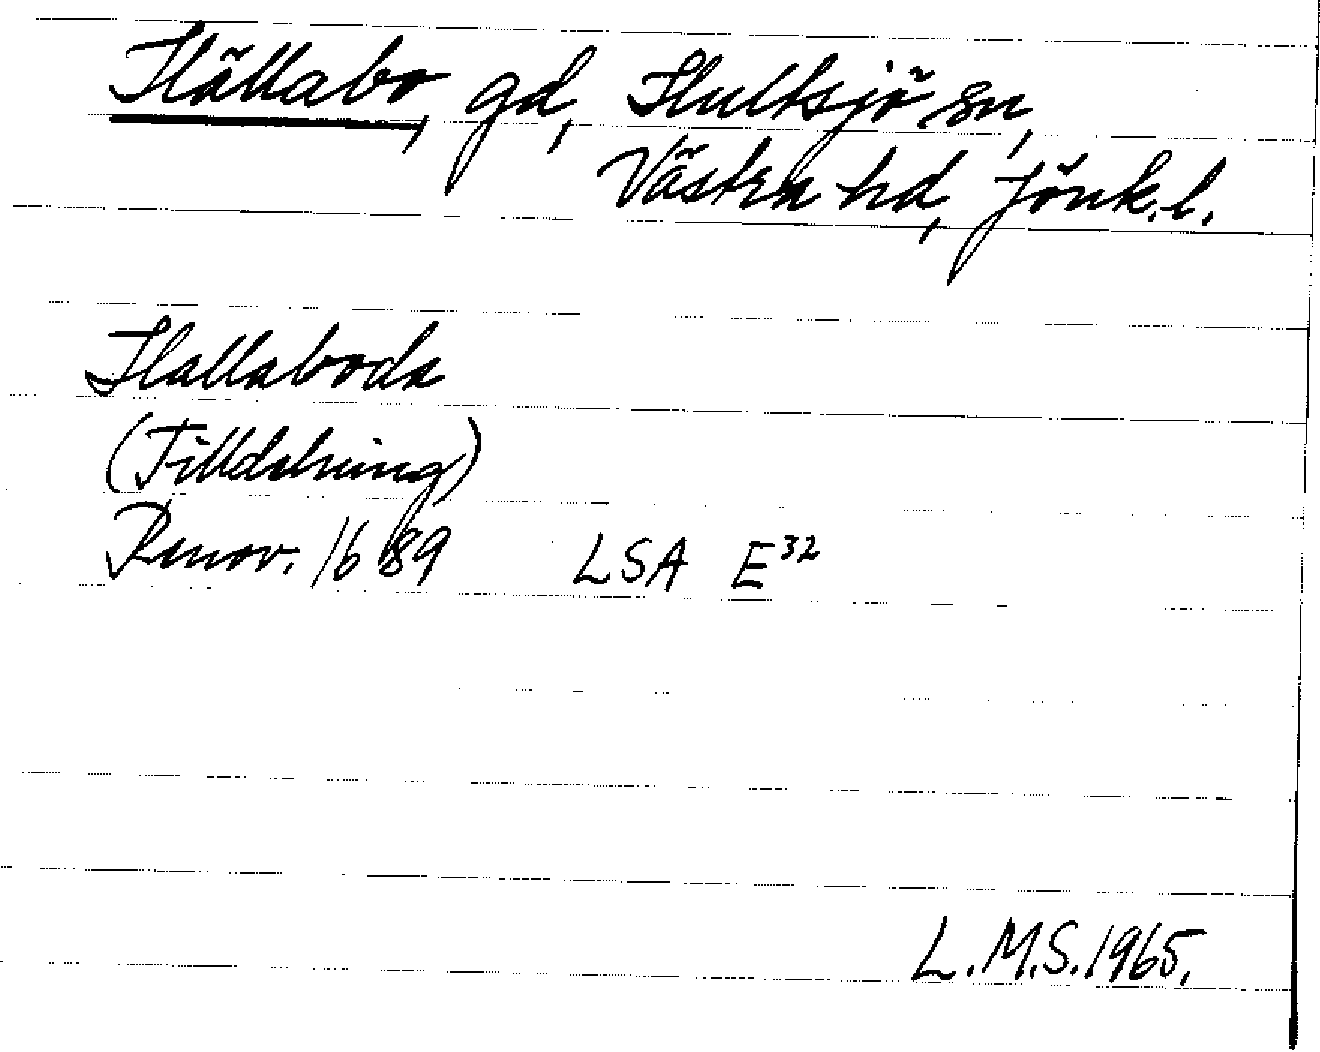 Hällabo, gd, Hultsjö sn,
Västra hd, Jönk.l.
Hallaboda
(Tilldelning)
Renov. 1689 LSA E32
L.M.S. 1965.